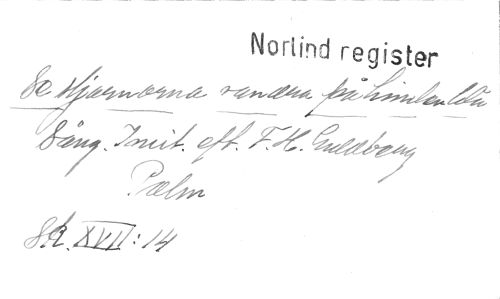 Norlind register
Se stjernorna vandra på himlen blå
Sång. Imit. eft. F. H. Guldberg
Palm
Sk. XVII: 14